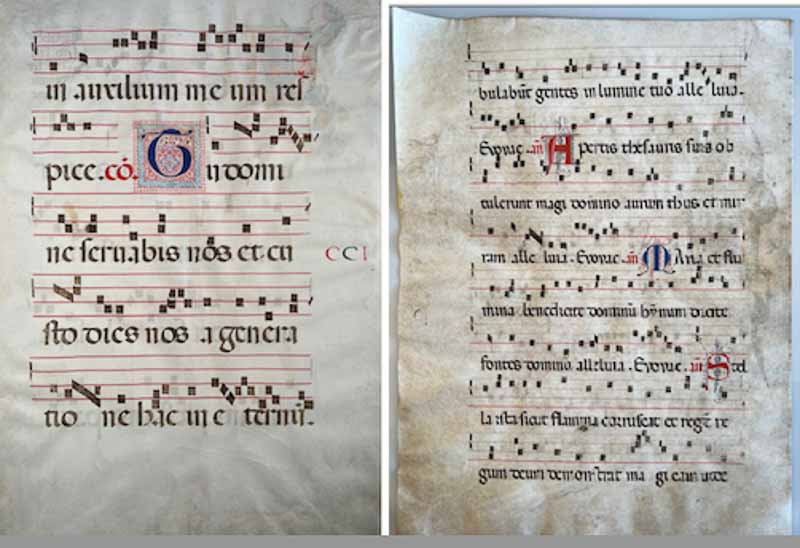 in auxilium me um res
pice. cō. Tu domi
ne seruabis nos et cu
CCI
sto dies nos a genera
tio ne hac in e ternū.
bulabūt gentes in lumine tuo alle luia.
Euouae. an̄ Apertis thesauris suis ob
tulerunt magi domino aurum thus et mir
ram alle luia. Euouae. an̄ Maria et flu
mina benedicite dominū hȳmum dicite
fontes domino alleluia. Euouae. an̄ Stel
la ista sicut flamma corruscat et regē re
gum deum demonstrat magi eam uide